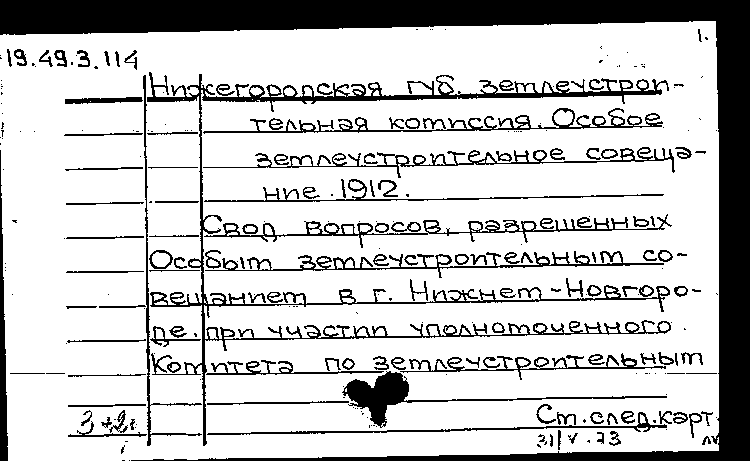 1.
19.49.3.114
Нижегородская губ. землеустрои-
тельная комиссия. Особое
землеустроительное совеща-
ние. 1912.
Свод вопросов, разрешенных
Особым землеустроительным со-
вещанием в г. Нижнем-Новгоро-
де. при участии уполномоченного
Комитета по землеустроительным
Ст. след. карт.
31/V.73